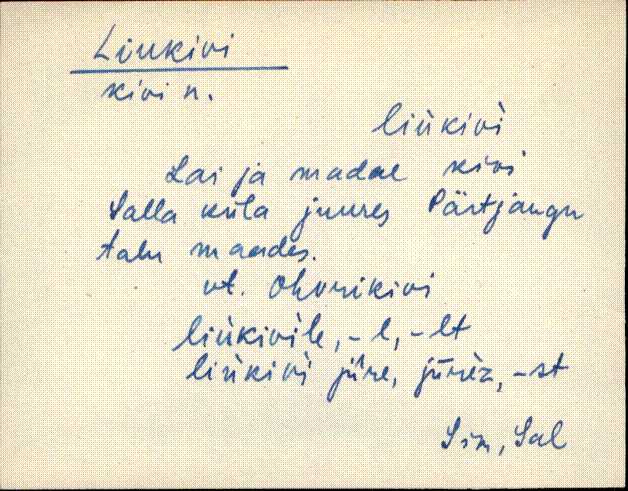 Liukivi
kivi n.
liùkivì
Lai ja madal kivi
Salla küla juures Pärtjaagu
talu maades.
vt. Ohvrikivi
liùkivìle, -l, -lt
liùkivì jūre, jūrèz, -st
Sim, Sal